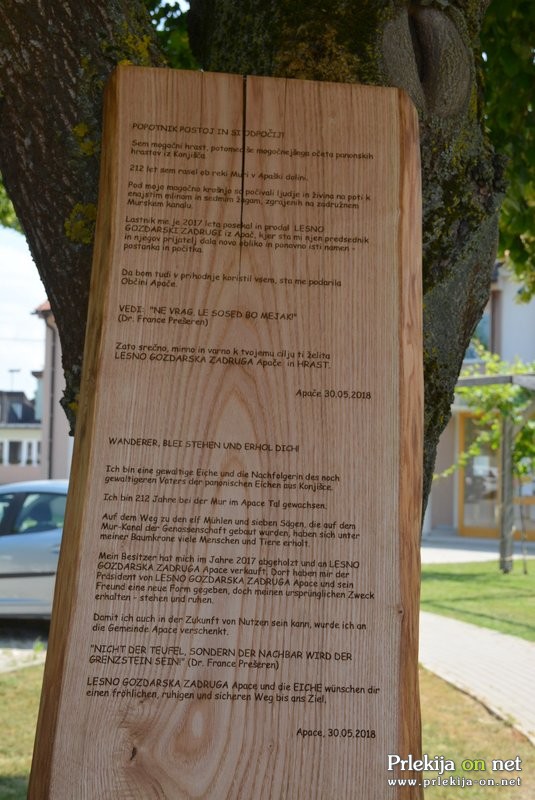 POPOTNIK POSTOJ IN SI ODPOČIJ!
Sem mogočni hrast, potomec še mogočnejšega očeta panonskih
hrastov iz Konjišča.
212 let sem rasel ob reki Muri v Apaški dolini.
Pod mojo mogočno krošnjo so počivali ljudje in živina na poti k
enajstim mlinom in sedmim žagam, zgrajenih na zadružnem
Murskem kanalu.
Lastnik me je 2017 leta posekal in prodal LESNO
GOZDARSKI ZADRUGI iz Apač, kjer sta mi njen predsednik
in njegov prijatelj dala novo obliko in ponovno isti namen -
postanka in počitka.
Da bom tudi v prihodnje koristil vsem, sta me podarila
Občini Apače.
VEDI: "NE VRAG, LE SOSED BO MEJAK!"
(Dr. France Prešeren)
Zato srečno, mirno in varno k tvojemu cilju ti želita
LESNO GOZDARSKA ZADRUGA Apače in HRAST.
Apače 30.05.2018
WANDERER, BLEI STEHEN UND ERHOL DICH!
Ich bin eine gewaltige Eiche und die Nachfolgerin des noch
gewaltigeren Vaters der panonischen Eichen aus Konjišče.
Ich bin 212 Jahre bei der Mur im Apace Tal gewachsen.
Auf dem Weg zu den elf Mühlen und sieben Sägen, die auf dem
Mur-Kanal der Genossenschaft gebaut wurden, haben sich unter
meiner Baumkrone viele Menschen und Tiere erholt.
Mein Besitzer hat mich im Jahre 2017 abgeholzt und an LESNO
GOZDARSKA ZADRUGA Apace verkauft. Dort haben mir der
Präsident von LESNO GOZDARSKA ZADRUGA Apace und sein
Freund eine neue Form gegeben, doch meinen ursprünglichen Zweck
erhalten - stehen und ruhen.
Damit ich auch in der Zukunft von Nutzen sein kann, wurde ich an
die Gemeinde Apace verschenkt.
"NICHT DER TEUFEL, SONDERN DER NACHBAR WIRD DER
GRENZSTEIN SEIN!" (Dr. France Prešeren)
LESNO GOZDARSKA ZADRUGA Apace und die EICHE wünschen dir
einen fröhlichen, ruhigen und sicheren Weg bis ans Ziel.
Apace, 30.05.2018
Prlekija on net
www.prlekija-on.net